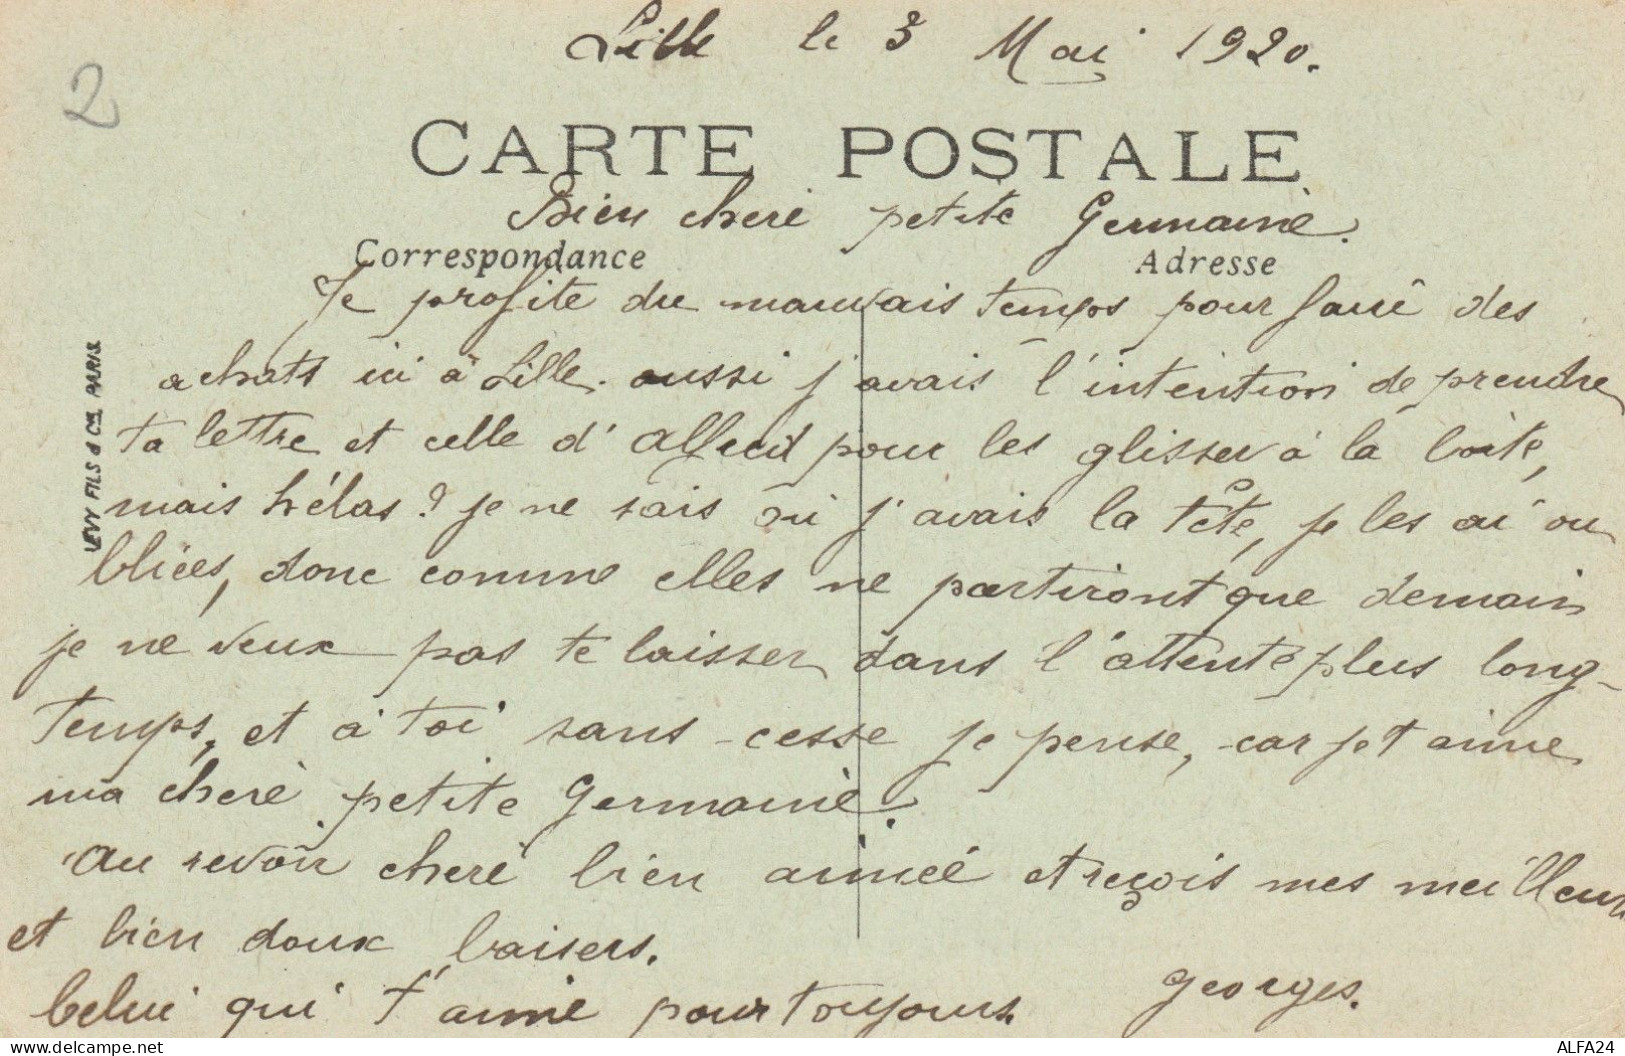 Lille le 3 Mai 1920.
2
CARTE POSTALE
Bien cheré petite Germaine.
Correspondance
Adresse
Je profite du mauvais temps pour faire des
achats ici à Lille. aussi j'avais l'intention de prendre
ta lettre et celle d'Alfred pour les glisser à la boite,
mais hélas ? je ne sais où j'avais la tête, je les ai ou
bliées, donc comme elles ne partiront que demain
je ne veux pas te laisser dans l'attente plus long-
temps, et à toi sans cesse je pense, car je t'aime
ma cheré petite Germaine.
Au revoir cheré bien aimée et reçois mes meilleurs
et bien doux baisers.
Celui qui t'aime pour toujours.
Georges.
LEVY FILS & Cie PARIS
delcampe.net
ALFA24